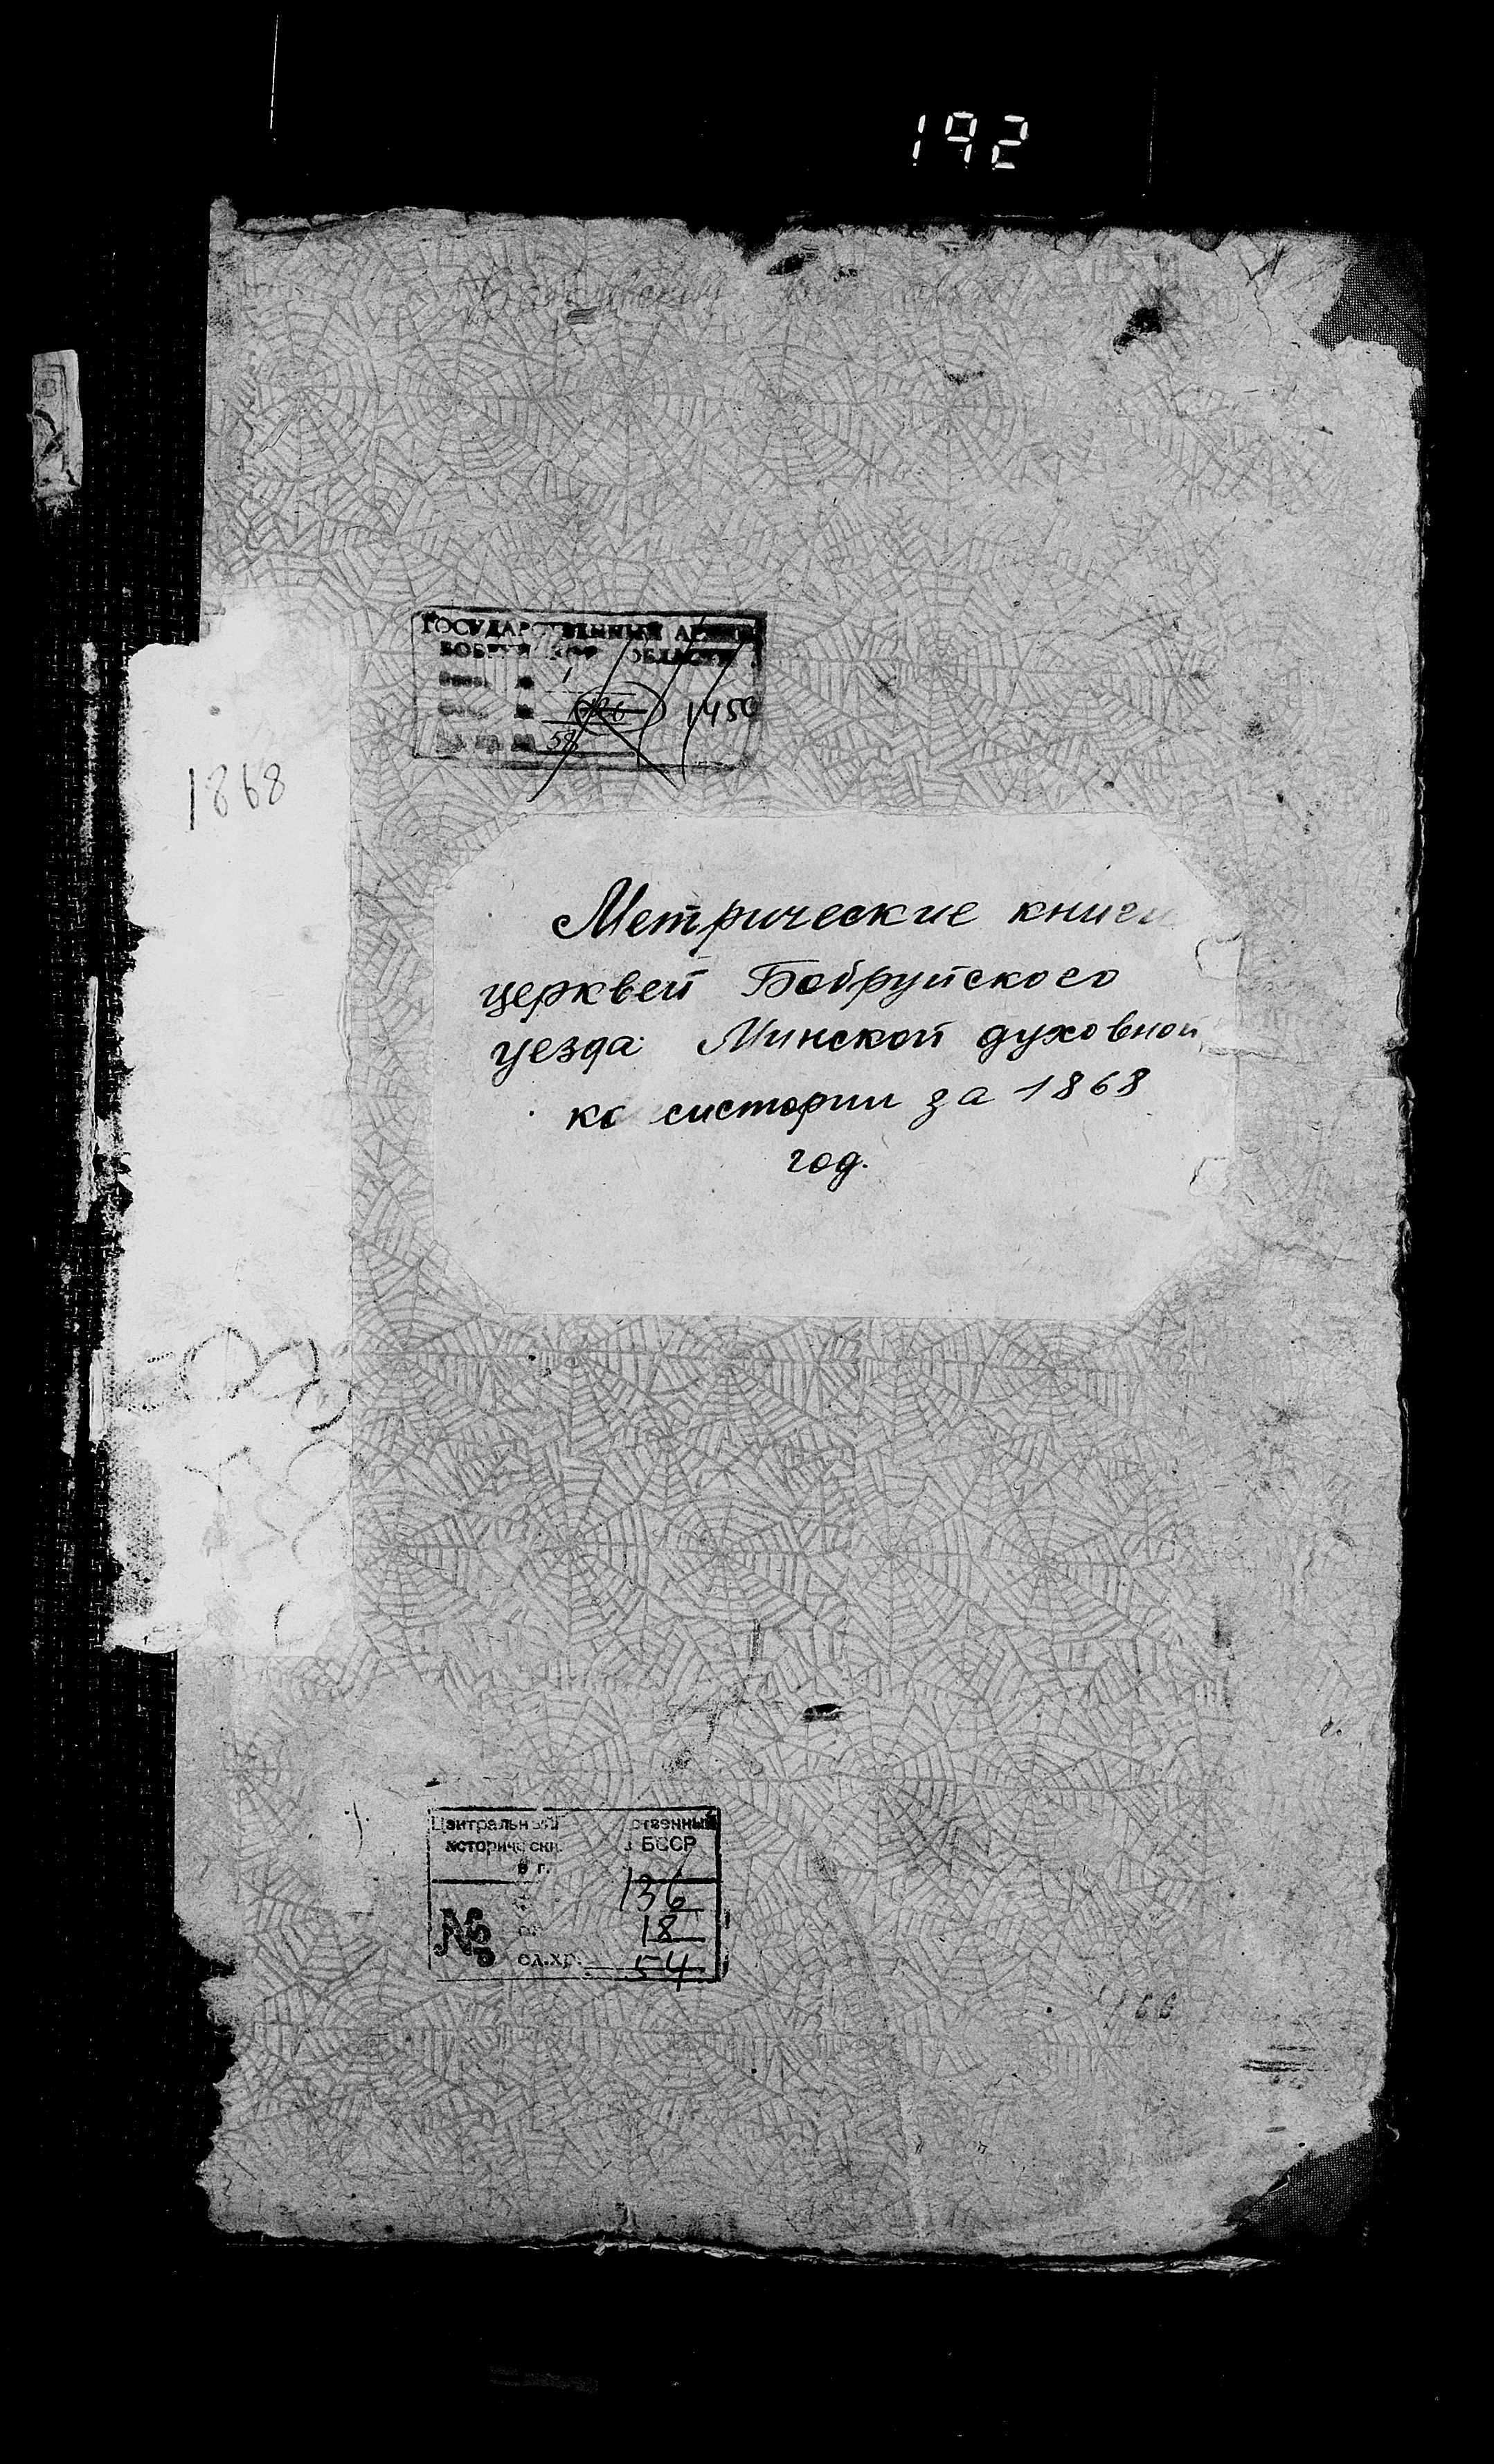 192
ГОСУДАРСТВЕННЫЙ АРХИВ
БОБРУЙСКОЙ ОБЛАСТИ
1
1450
58
1868
Метрические книги
церквей Бобруйского
уезда Минской духовной
ко систории за 1868
год.
Центральный ственный
исторически БССР
в г.
136
№ 18
ед.хр. 54